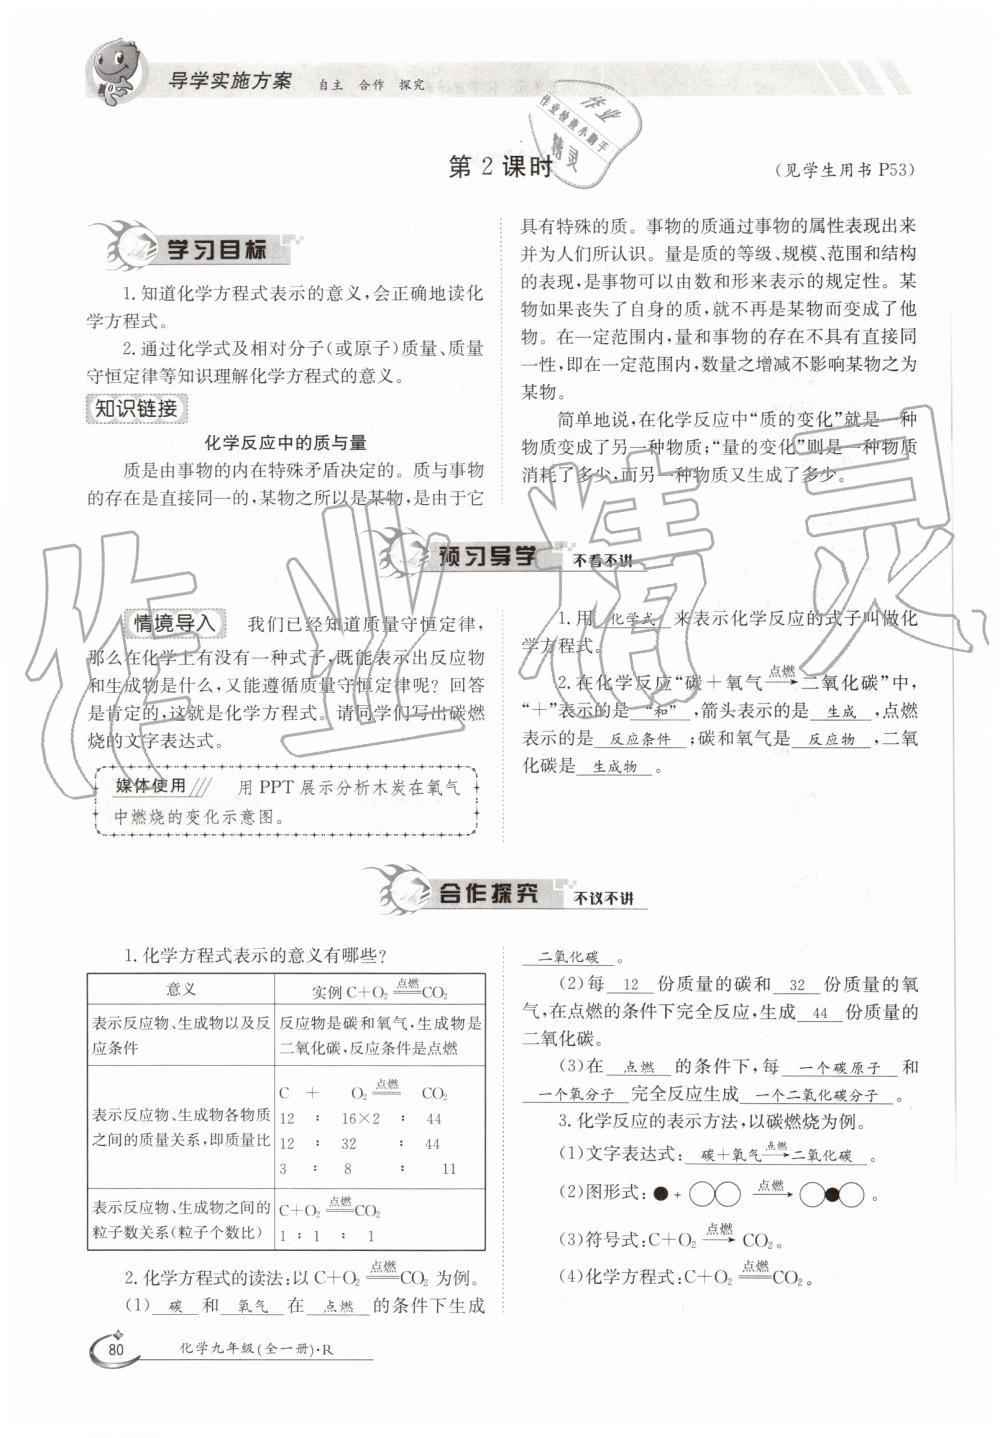 导学实施方案 自主 合作 探究
作业
作业检查小助手
精灵
第 2 课时
(见学生用书 P53)
学习目标
1.知道化学方程式表示的意义,会正确地读化
学方程式。
2.通过化学式及相对分子(或原子)质量、质量
守恒定律等知识理解化学方程式的意义。
知识链接
化学反应中的质与量
质是由事物的内在特殊矛盾决定的。质与事物
的存在是直接同一的,某物之所以是某物,是由于它
具有特殊的质。事物的质通过事物的属性表现出来
并为人们所认识。量是质的等级、规模、范围和结构
的表现,是事物可以由数和形来表示的规定性。某
物如果丧失了自身的质,就不再是某物而变成了他
物。在一定范围内,量和事物的存在不具有直接同
一性,即在一定范围内,数量之增减不影响某物之为
某物。
简单地说,在化学反应中“质的变化”就是一种
物质变成了另一种物质;“量的变化”则是一种物质
消耗了多少,而另一种物质又生成了多少。
作业精灵
预习导学 不看不讲
情境导入 我们已经知道质量守恒定律,
那么在化学上有没有一种式子,既能表示出反应物
和生成物是什么,又能遵循质量守恒定律呢? 回答
是肯定的,这就是化学方程式。请同学们写出碳燃
烧的文字表达式。
媒体使用 用 PPT 展示分析木炭在氧气
中燃烧的变化示意图。
1.用 化学式 来表示化学反应的式子叫做化
学方程式。
2.在化学反应“碳+氧气 点燃→ 二氧化碳”中,
“+”表示的是 “和” ,箭头表示的是 生成 ,点燃
表示的是 反应条件 ;碳和氧气是 反应物 ,二氧
化碳是 生成物 。
合作探究 不议不讲
1.化学方程式表示的意义有哪些?
意义 实例 C+O₂ 点燃═ CO₂
表示反应物、生成物以及反
应条件
反应物是碳和氧气,生成物是
二氧化碳,反应条件是点燃
表示反应物、生成物各物质
之间的质量关系,即质量比
C + O₂ 点燃═ CO₂
12 : 16×2 : 44
12 : 32 : 44
3 : 8 : 11
表示反应物、生成物之间的
粒子数关系(粒子个数比)
C+O₂ 点燃═ CO₂
1 : 1 : 1
2.化学方程式的读法:以 C+O₂ 点燃═ CO₂ 为例。
(1) 碳 和 氧气 在 点燃 的条件下生成
二氧化碳 。
(2)每 12 份质量的碳和 32 份质量的氧
气,在点燃的条件下完全反应,生成 44 份质量的
二氧化碳。
(3)在 点燃 的条件下,每 一个碳原子 和
一个氧分子 完全反应生成 一个二氧化碳分子 。
3.化学反应的表示方法,以碳燃烧为例。
(1)文字表达式: 碳+氧气 点燃→ 二氧化碳 。
(2)图形式: + 点燃→ 。
(3)符号式:C+O₂ 点燃→ CO₂。
(4)化学方程式:C+O₂ 点燃═ CO₂。
80 化学九年级(全一册)·R